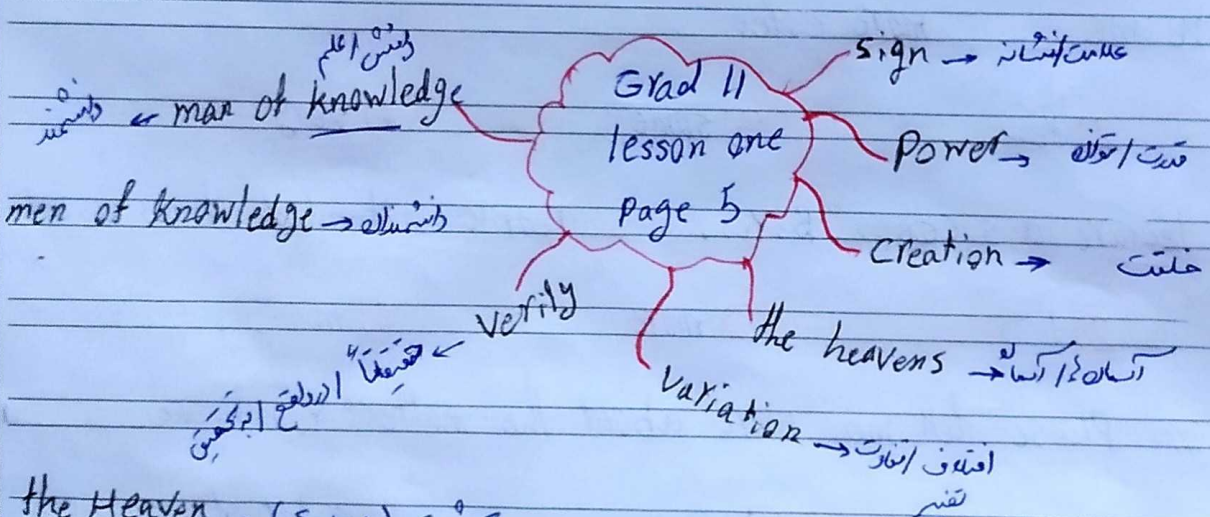 Grad 11
lesson one
page 5
sign → علامت/نشانه
Power → قدرت / توان
Creation → خلقت
the heavens → آسمان‌ها / آسمان
Variation → اختلاف / تفاوت
تغییر
verily → حقیقتاً / درواقع / به‌تحقیق
دانش / علم
man of knowledge → دانشمند
men of knowledge → دانشمندان
the Heaven